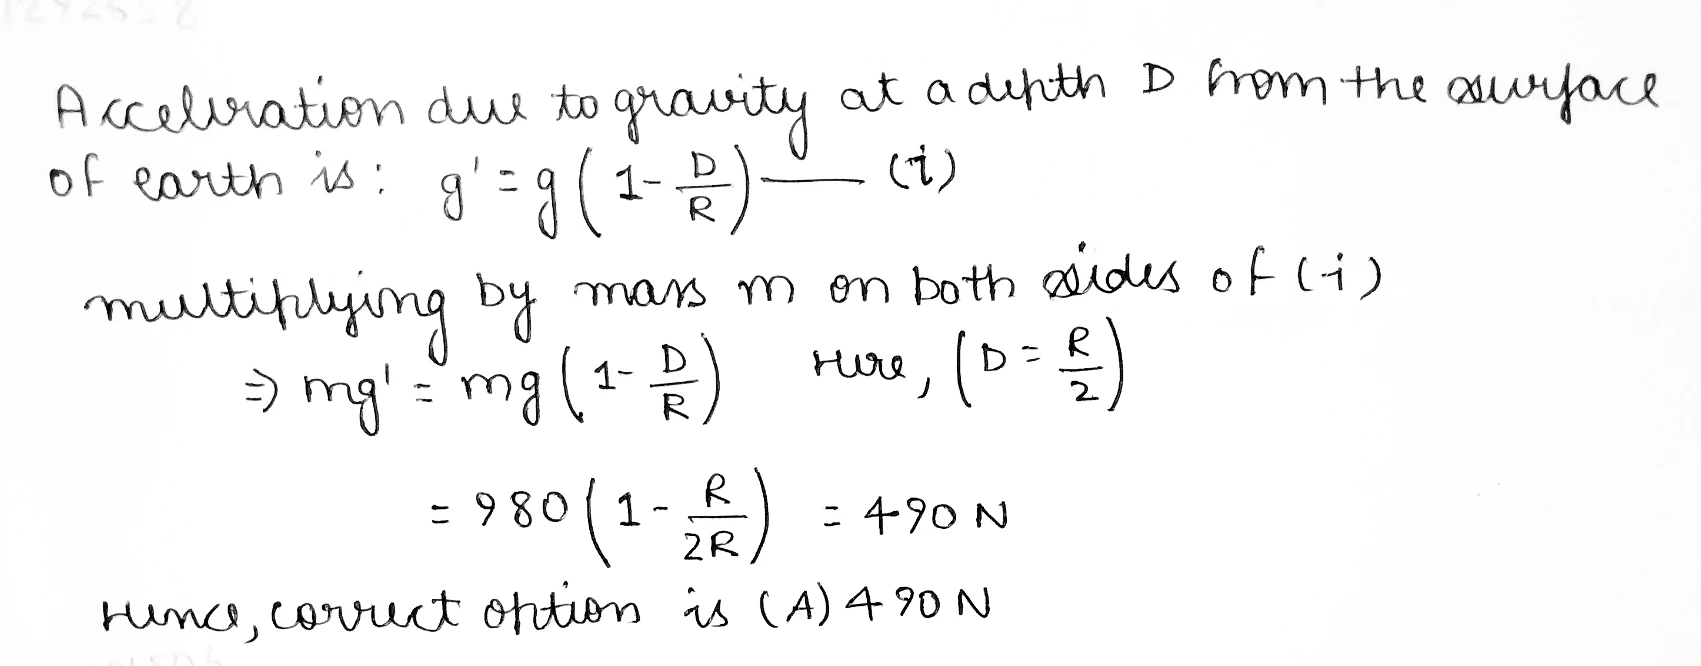 Acceleration due to gravity at a depth D from the surface
of earth is: g' = g(1 - D/R) —— (i)
multiplying by mass m on both sides of (i)
⇒ mg' = mg(1 - D/R) Here, (D = R/2)
= 980(1 - R/2R) = 490 N
Hence, correct option is (A) 490 N